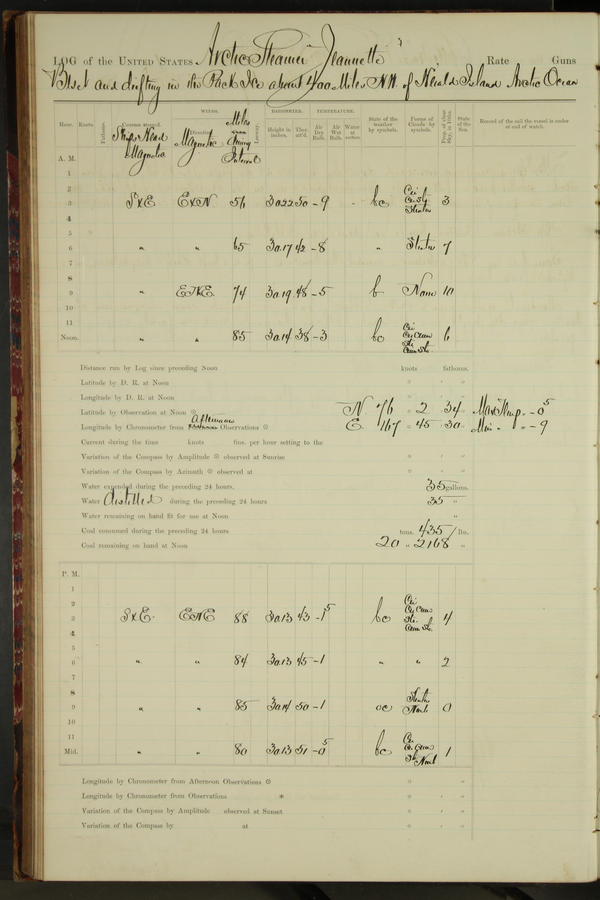 LOG of the UNITED STATES Arctic Steamer "Jeannette" Rate Guns
Beset and drifting in the Pack Ice about 400 Miles NW of Herald Island Arctic Ocean
WINDS. BAROMETER. TEMPERATURE.
Hour. Knots. Fathoms. Courses steered. Direction Leeway. Height in inches. Ther. att'd. Air Dry Bulb. Air Wet Bulb. Water at surface. State of the weather by symbols. Forms of Clouds by symbols. Prop. of clear Sky, in 10ths. State of the Sea. Record of the sail the vessel is under at end of watch.
Ship's Head Magnetic Magnetic Miles Interval
A. M.
1
2
3 SxE ExN 56 30.22 50 -9 bc Cir 3
4
5
6 " " 65 30.17 42 -8 " Stratus 7
7
8
9 " ENE 74 30.19 48 -5 b None 10
10
11
Noon. " " 85 30.14 38 -3 bc 6
Distance run by Log since preceding Noon knots fathoms.
Latitude by D. R. at Noon ° ' "
Longitude by D. R. at Noon ° ' "
Latitude by Observation at Noon N 76 ° 2 ' 34 " Max Temp. -0.5
Longitude by Chronometer from Afternoon Observations E 167 ° 45 ' 30 " Min " -9
Current during the time knots fms. per hour setting to the
Variation of the Compass by Amplitude observed at Sunrise ° ' "
Variation of the Compass by Azimuth observed at ° ' "
Water expended during the preceding 24 hours. 35 gallons.
Water distilled during the preceding 24 hours 35 "
Water remaining on hand fit for use at Noon "
Coal consumed during the preceding 24 hours tons. 435 lbs.
Coal remaining on hand at Noon 20 " 2168 "
P. M.
1
2
3 SxE ENE 88 30.13 43 -1.5 bc 4
4
5
6 " " 84 30.13 45 -1 " " 2
7
8
9 " " 85 30.14 50 -1 oc 0
10
11
Mid. " " 80 30.13 51 -0.5 bc 1
Longitude by Chronometer from Afternoon Observations ° "
Longitude by Chronometer from Observations * ° ' "
Variation of the Compass by Amplitude observed at Sunset ° ' "
Variation of the Compass by at ° ' "